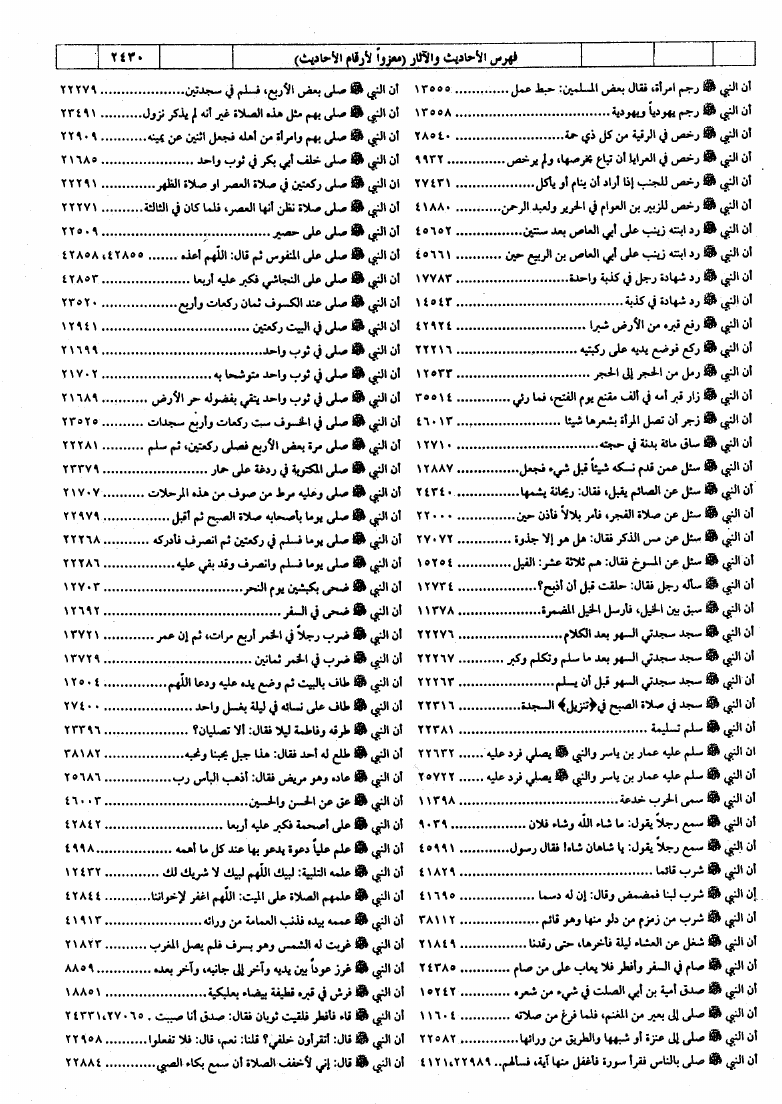 فهرس الأحاديث والآثار (معزواً لأرقام الأحاديث) ٢٤٣٠
أن النبي ﷺ رجم امرأة، فقال بعض المسلمين: حبط عمل ........ ١٣٥٥٥
أن النبي ﷺ رجم يهودياً ويهودية ........ ١٣٥٥٨
أن النبي ﷺ رخص في الرقية من كل ذي حمة ........ ٢٨٥٤٠
أن النبي ﷺ رخص في العرايا أن تباع بخرصها، ولم يرخص ........ ٩٩٣٢
أن النبي ﷺ رخص للجنب إذا أراد أن ينام أو يأكل ........ ٢٧٤٣١
أن النبي ﷺ رخص للزبير بن العوام في الحرير ولعبد الرحمن ........ ٤١٨٨٠
أن النبي ﷺ رد ابنته زينب على أبي العاص بعد سنتين ........ ٤٥٦٥٢
أن النبي ﷺ رد ابنته زينب على أبي العاص بن الربيع حين ........ ٤٥٦٦١
أن النبي ﷺ رد شهادة رجل في كذبة واحدة ........ ١٧٧٨٣
أن النبي ﷺ رد شهادة في كذبة ........ ١٤٥٤٣
أن النبي ﷺ رفع قبره من الأرض شبرا ........ ٤٢٩٢٤
أن النبي ﷺ ركع فوضع يديه على ركبتيه ........ ٢٢٢١٦
أن النبي ﷺ رمل من الحجر إلى الحجر ........ ١٢٥٣٣
أن النبي ﷺ زار قبر أمه في ألف مقنع يوم الفتح، فما رئي ........ ٣٥٥١٤
أن النبي ﷺ زجر أن تصل المرأة بشعرها شيئا ........ ٤٦٠١٣
أن النبي ﷺ ساق مائة بدنة في حجته ........ ١٢٧١٠
أن النبي ﷺ سئل عمن قدم نسكه شيئاً قبل شيء فجعل ........ ١٢٨٨٧
أن النبي ﷺ سئل عن الصائم يقبل، فقال: ريحانة يشمها ........ ٢٤٣٤٠
أن النبي ﷺ سئل عن صلاة الفجر، فأمر بلالاً فأذن حين ........ ٢٢٠٠٠
أن النبي ﷺ سئل عن مس الذكر فقال: هل هو إلا جذوة ........ ٢٧٠٧٢
أن النبي ﷺ سئل عن المسوخ فقال: هم ثلاثة عشر: الفيل ........ ١٥٢٥٤
أن النبي ﷺ سأله رجل فقال: حلقت قبل أن أذبح؟ ........ ١٢٧٣٤
أن النبي ﷺ سبق بين الخيل، فأرسل الخيل المضمرة ........ ١١٣٧٨
أن النبي ﷺ سجد سجدتي السهو بعد الكلام ........ ٢٢٢٧٦
أن النبي ﷺ سجد سجدتي السهو بعد ما سلم وتكلم وكبر ........ ٢٢٢٦٧
أن النبي ﷺ سجد سجدتي السهو قبل أن يسلم ........ ٢٢٢٦٣
أن النبي ﷺ سجد في صلاة الصبح في﴿تنزيل﴾ السجدة ........ ٢٢٣١٦
أن النبي ﷺ سلم تسليمة ........ ٢٢٣٨١
ان النبي ﷺ سلم عليه عمار بن ياسر والنبي ﷺ يصلي فرد عليه ...... ٢٢٦٣٢
أن النبي ﷺ سلم عليه عمار بن ياسر والنبي ﷺ يصلي فرد عليه ...... ٢٥٧٢٢
أن النبي ﷺ سمى الحرب خدعة ........ ١١٣٩٨
أن النبي ﷺ سمع رجلاً يقول: ما شاء الله وشاء فلان ........ ٩٠٣٩
أن النبي ﷺ سمع رجلاً يقول: يا شاهان شاه! فقال رسول ........ ٤٥٩٩١
أن النبي ﷺ شرب قائما ........ ٤١٨٢٩
أن النبي ﷺ شرب لبنا فمضمض وقال: إن له دسما ........ ٤١٦٩٥
أن النبي ﷺ شرب من زمزم من دلو منها وهو قائم ........ ٣٨١١٢
أن النبي ﷺ شغل عن العشاء ليلة فأخرها، حتى رقدنا ........ ٢١٨٤٩
أن النبي ﷺ صام في السفر وأفطر فلا يعاب على من صام ........ ٢٤٣٨٥
أن النبي ﷺ صدق أمية بن أبي الصلت في شيء من شعره ........ ١٥٢٤٢
أن النبي ﷺ صلى إلى بعير من المغنم، فلما فرغ من صلاته ........ ١١٦٠٤
أن النبي ﷺ صلى إلى عنزة أو شبهها والطريق من ورائها ........ ٢٢٥٨٢
أن النبي ﷺ صلى بالناس فقرأ سورة فأغفل منها آية، فسألهم.. ٢٢٩٨٩، ٤١٢١
أن النبي ﷺ صلى بعض الأربع، فسلم في سجدتين ........ ٢٢٢٧٩
أن النبي ﷺ صلى بهم مثل هذه الصلاة غير أنه لم يذكر نزول ........ ٢٣٤٩١
أن النبي ﷺ صلى بهم وامرأة من أهله فجعل اثنين عن يمينه ........ ٢٢٩٠٩
أن النبي ﷺ صلى خلف أبي بكر في ثوب واحد ........ ٢١٦٨٥
ان النبي ﷺ صلى ركعتين في صلاة العصر او صلاة الظهر ........ ٢٢٢٩١
أن النبي ﷺ صلى صلاة نظن أنها العصر، فلما كان في الثالثة ........ ٢٢٢٧١
أن النبي ﷺ صلى على حصير ........ ٢٢٥٠٩
أن النبي ﷺ صلى على المنفوس ثم قال: اللّهم أعذه ...... ٤٢٨٥٥، ٤٢٨٥٨
أن النبي ﷺ صلى على النجاشي فكبر عليه أربعا ........ ٤٢٨٥٣
أن النبي ﷺ صلى عند الكسوف ثمان ركعات وأربع ........ ٢٣٥٢٠
أن النبي ﷺ صلى في البيت ركعتين ........ ١٢٩٤١
أن النبي ﷺ صلى في ثوب واحد ........ ٢١٦٩٩
أن النبي ﷺ صلى في ثوب واحد متوشحا به ........ ٢١٧٠٢
أن النبي ﷺ صلى في ثوب واحد يتقي بفضوله حر الأرض ........ ٢١٦٨٩
أن النبي ﷺ صلى في الخسوف ست ركعات وأربع سجدات ........ ٢٣٥٢٥
أن النبي ﷺ صلى مرة بعض الأربع فصلى ركعتين، ثم سلم ........ ٢٢٢٨١
أن النبي ﷺ صلى المكتوبة في ردغة على حمار ........ ٢٣٣٧٩
أن النبي ﷺ صلى وعليه مرط من صوف من هذه المرحلات ........ ٢١٧٠٧
أن النبي ﷺ صلى يوما بأصحابه صلاة الصبح ثم أقبل ........ ٢٢٩٧٩
أن النبي ﷺ صلى يوما فسلم في ركعتين ثم انصرف فأدركه ........ ٢٢٢٦٨
أن النبي ﷺ صلى يوما فسلم وانصرف وقد بقي عليه ........ ٢٢٢٨٦
أن النبي ﷺ ضحى بكبشين يوم النحر ........ ١٢٧٠٣
أن النبي ﷺ ضحى في السفر ........ ١٢٦٩٢
أن النبي ﷺ ضرب رجلاً في الخمر أربع مرات، ثم إن عمر ........ ١٣٧٢١
أن النبي ﷺ ضرب في الخمر ثمانين ........ ١٣٧٢٩
أن النبي ﷺ طاف بالبيت ثم وضع يده عليه ودعا اللّهم ........ ١٢٥٠٤
أن النبي ﷺ طاف على نسائه في ليلة بغسل واحد ........ ٢٧٤٠٠
أن النبي ﷺ طرقه وفاطمة ليلا فقال: ألا تصليان؟ ........ ٢٣٣٩٦
أن النبي ﷺ طلع له أحد فقال: هذا جبل يحبنا ونحبه ........ ٣٨١٨٢
أن النبي ﷺ عاده وهو مريض فقال: أذهب البأس رب ........ ٢٥٦٨٦
أن النبي ﷺ عق عن الحسن والحسين ........ ٤٦٠٠٣
أن النبي ﷺ على أصحمة فكبر عليه أربعا ........ ٤٢٨٤٢
أن النبي ﷺ علم علياً دعوة يدعو بها عند كل ما أهمه ........ ٤٩٩٨
أن النبي ﷺ علمه التلبية: لبيك اللّهم لبيك لا شريك لك ........ ١٢٤٣٢
أن النبي ﷺ علمهم الصلاة على الميت: اللّهم اغفر لإخواننا ........ ٤٢٨٤٤
أن النبي ﷺ عممه بيده فذنب العمامة من ورائه ........ ٤١٩١٣
أن النبي ﷺ غربت له الشمس وهو بسرف فلم يصل المغرب ........ ٢١٨٢٣
أن النبي ﷺ غرز عوداً بين يديه وآخر إلى جانبه، وآخر بعده ........ ٨٨٥٩
أن النبي ﷺ فرش في قبره قطيفة بيضاء بعلبكية ........ ١٨٨٥١
أن النبي ﷺ قاء فأفطر فلقيت ثوبان فقال: صدق أنا صببت . ٢٧٠٦٥، ٢٤٣٣١
أن النبي ﷺ قال: أتقرأون خلفي؟ قلنا: نعم، قال: فلا تفعلوا ........ ٢٢٩٥٨
أن النبي ﷺ قال: إني لأخفف الصلاة أن سمع بكاء الصبي ........ ٢٢٨٨٤